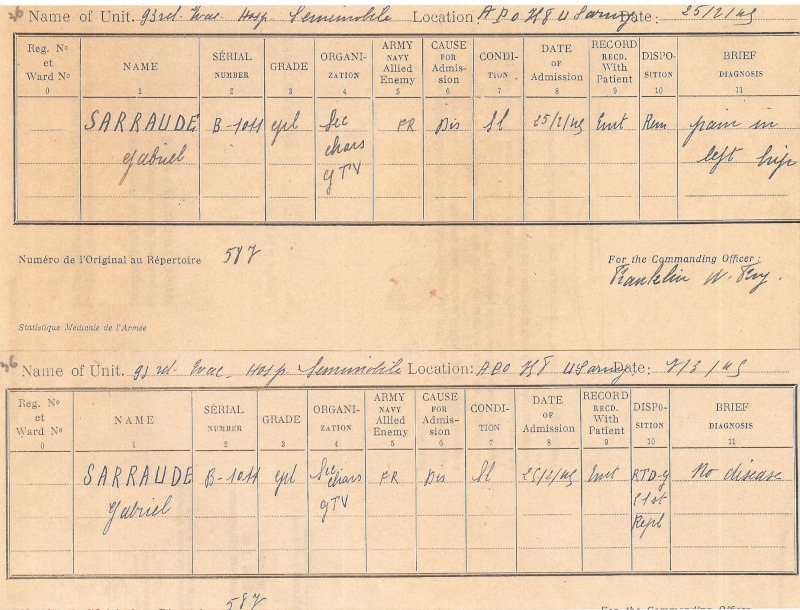 36 Name of Unit. 93rd. Evac. Hosp Semimobile Location: APO U S army Date: 25/2/45
Reg. No et Ward No 0 NAME 1 SÉRIAL NUMBER 2 GRADE 3 ORGANIZATION 4 ARMY NAVY Allied Enemy 5 CAUSE FOR Admission 6 CONDITION 7 DATE OF Admission 8 RECORD RECD. With Patient 9 DISPOSITION 10 BRIEF DIAGNOSIS 11
SARRAUDE B-1011 cpl Sec FR Dis Sl 25/2/45 Emt Rem pain in
Gabriel chars left hip
GTV
Numéro de l'Original au Répertoire 587 For the Commanding Officer :
Franklin W. Fry.
Statistique Médicale de l'Armée
36 Name of Unit. 93 rd. Evac. Hosp. Semimobile Location: APO U S army Date: 7/3/45
Reg. No et Ward No 0 NAME 1 SÉRIAL NUMBER 2 GRADE 3 ORGANIZATION 4 ARMY NAVY Allied Enemy 5 CAUSE FOR Admission 6 CONDITION 7 DATE OF Admission 8 RECORD RECD. With Patient 9 DISPOSITION 10 BRIEF DIAGNOSIS 11
SARRAUDE B-1011 cpl Sec FR Dis Sl 25/2/45 Emt RTD-G No disease
Gabriel chars 1st
GTV Repl
587 For the Commanding Officer